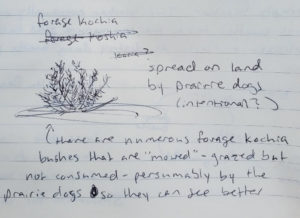 forage kochia
forage koshia
spread on land
by prairie dogs
(intentional?)
(there are numerous forage kochia
bushes that are "mowed" - grazed but
not consumed - persumably by the
prairie dogs so they can see better